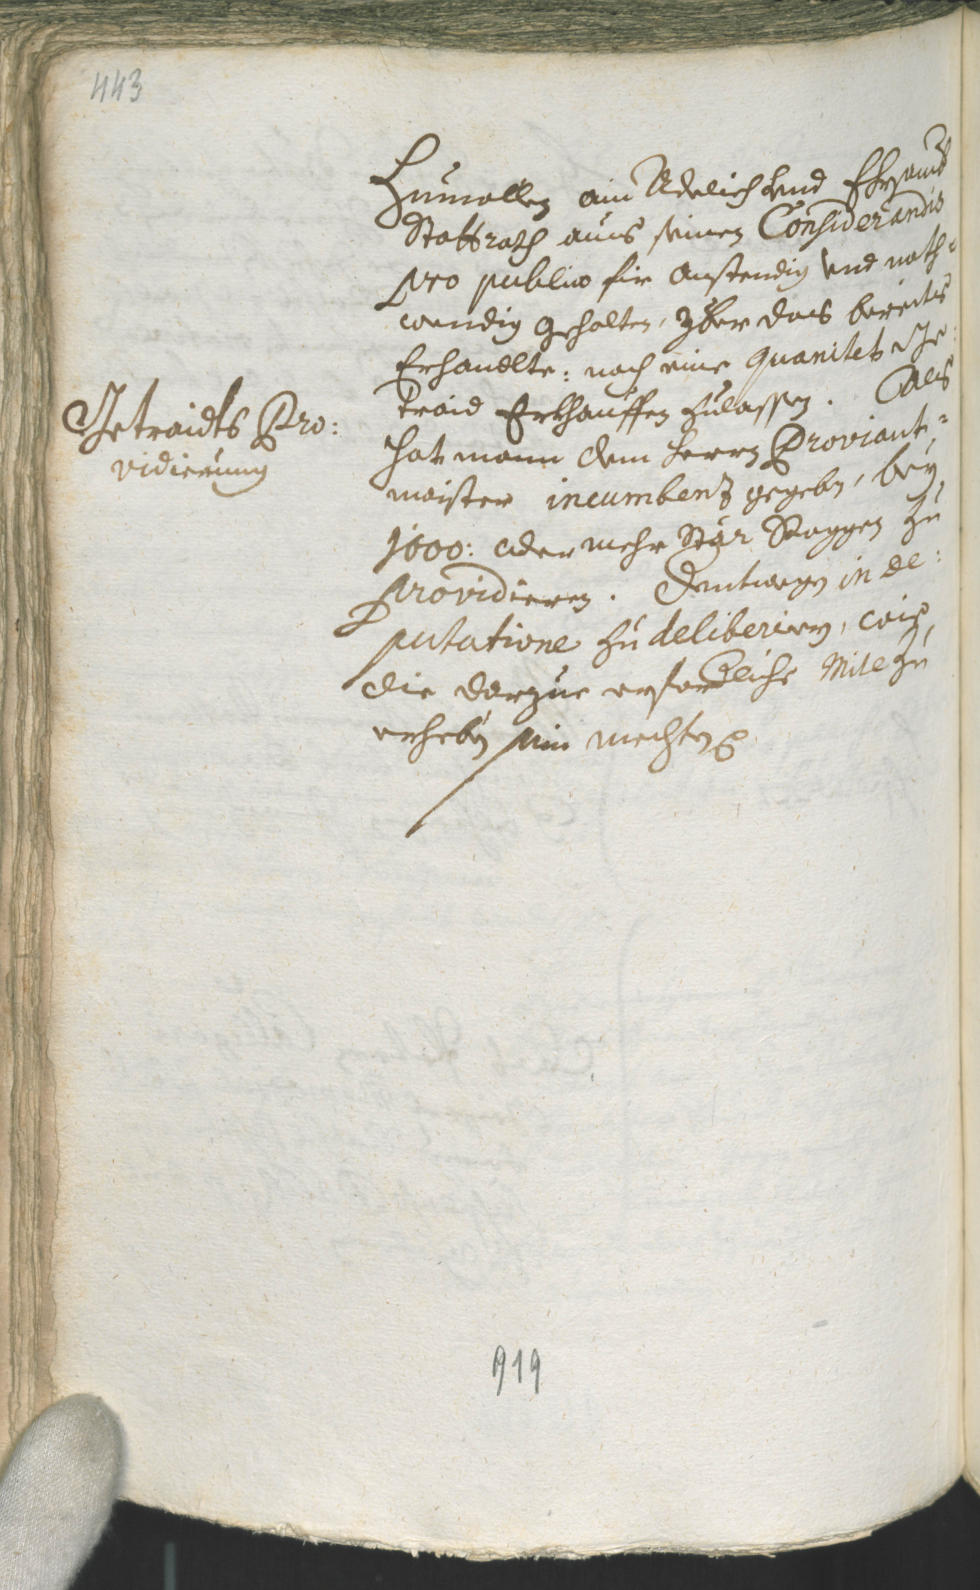 443
Zumallen ain Adelich vnd Ehrsamb
Stattrath auß seinen Considerandis
pro publico für anstendig vnd noth=
wendig gehalten, yber das bereits
Erhandlte: noch eine quanitet Ge:
traid Erkhauffen zulassen. Als
hat mann dem herrn Proviant=
maister incumbenz gegeben, bey
1600: oder mehr Stär Roggen zu
providieren. Dentwegen in de:
putatione zu deliberiern, wie
die darzue erforderliche Mitl zu
erheben sein mechten
Getraidts Pro:
vidierung
919